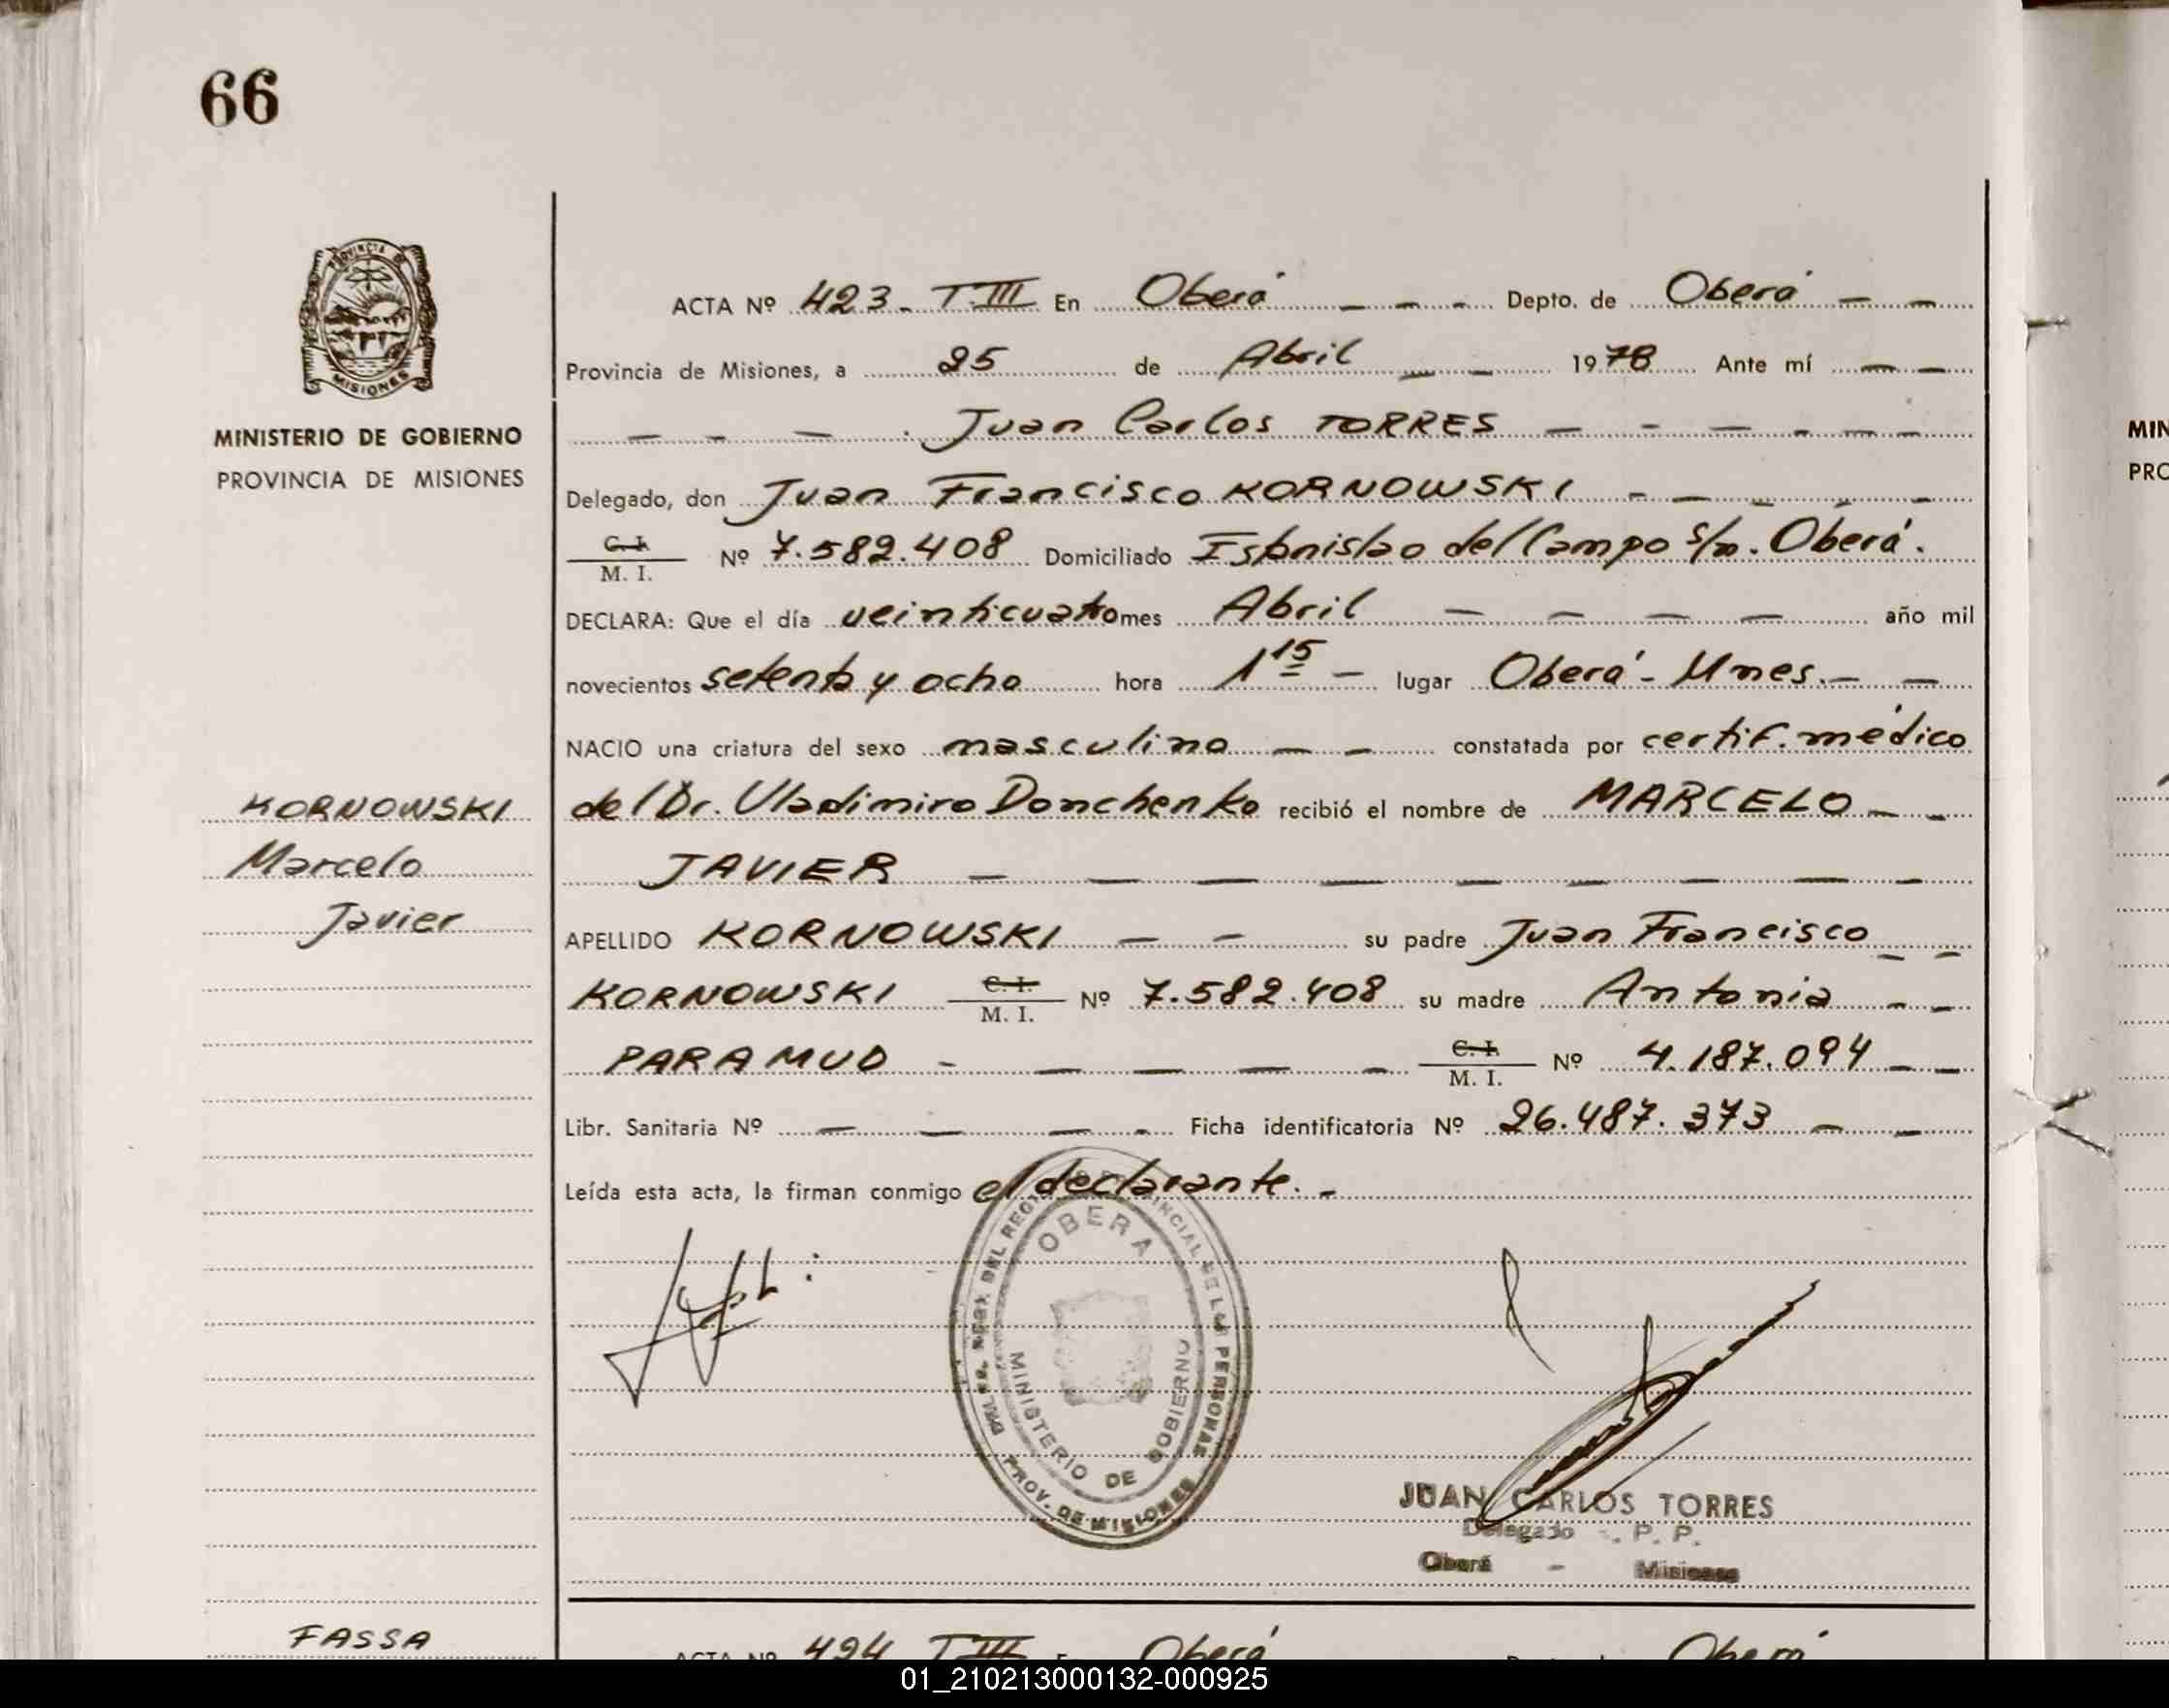 66
PROVINCIA DE
MISIONES
MINISTERIO DE GOBIERNO
PROVINCIA DE MISIONES
ACTA Nº 423 - T.III En Oberá - - - Depto. de Oberá - -
Provincia de Misiones, a 25 de Abril - - 1978 Ante mí - -
- - - Juan Carlos TORRES - - - - - -
Delegado, don Juan Francisco KORNOWSKI - - - -
C. I.
M. I. Nº 7.582.408 Domiciliado Estanislao del Campo s/n. Oberá.
DECLARA: Que el día veinticuatro mes Abril - - - - año mil
novecientos setenta y ocho hora 1 15 - lugar Oberá - Mnes. - -
NACIO una criatura del sexo masculino - - constatada por certif. médico
del Dr. Vladimiro Donchenko recibió el nombre de MARCELO - -
JAVIER - - - - - - - - -
APELLIDO KORNOWSKI - - su padre Juan Francisco - -
KORNOWSKI C. I.
M. I. Nº 7.582.408 su madre Antonia - -
PARAMUD - - - - - C. I.
M. I. Nº 4.187.094 - -
Libr. Sanitaria Nº - - - - Ficha identificatoria Nº 26.487.373 - -
Leída esta acta, la firman conmigo el declarante. -
KORNOWSKI
Marcelo
Javier
OBERA
MINISTERIO DE GOBIERNO
DEL REG. PROVINCIAL DE LAS PERSONAS
PROV. DE MISIONES
JUAN CARLOS TORRES
Delegado P. P.
Oberá - Misiones
FASSA
ACTA Nº 424 T III E Oberá Oberá
MIN
PRO
01_210213000132-000925